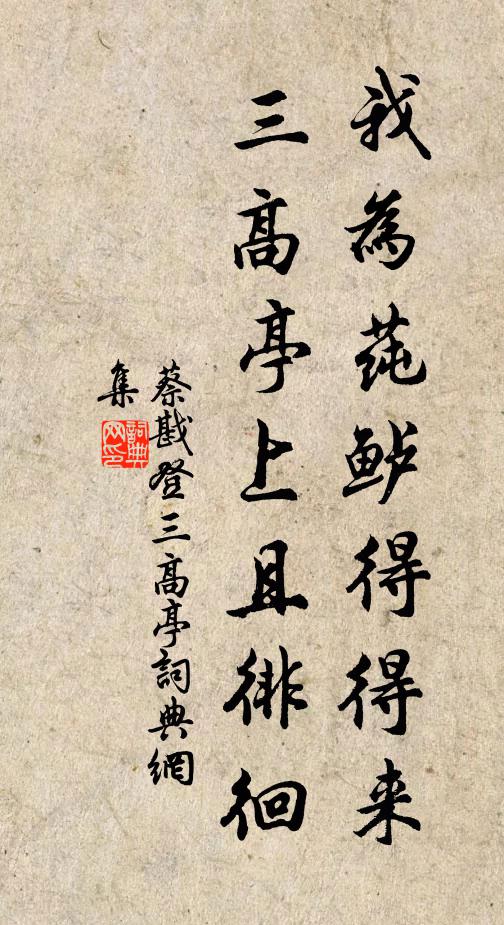 我為莼鲈得得来
三高亭上且徘徊
蔡戡登三高亭詞典網
集
詞典網印